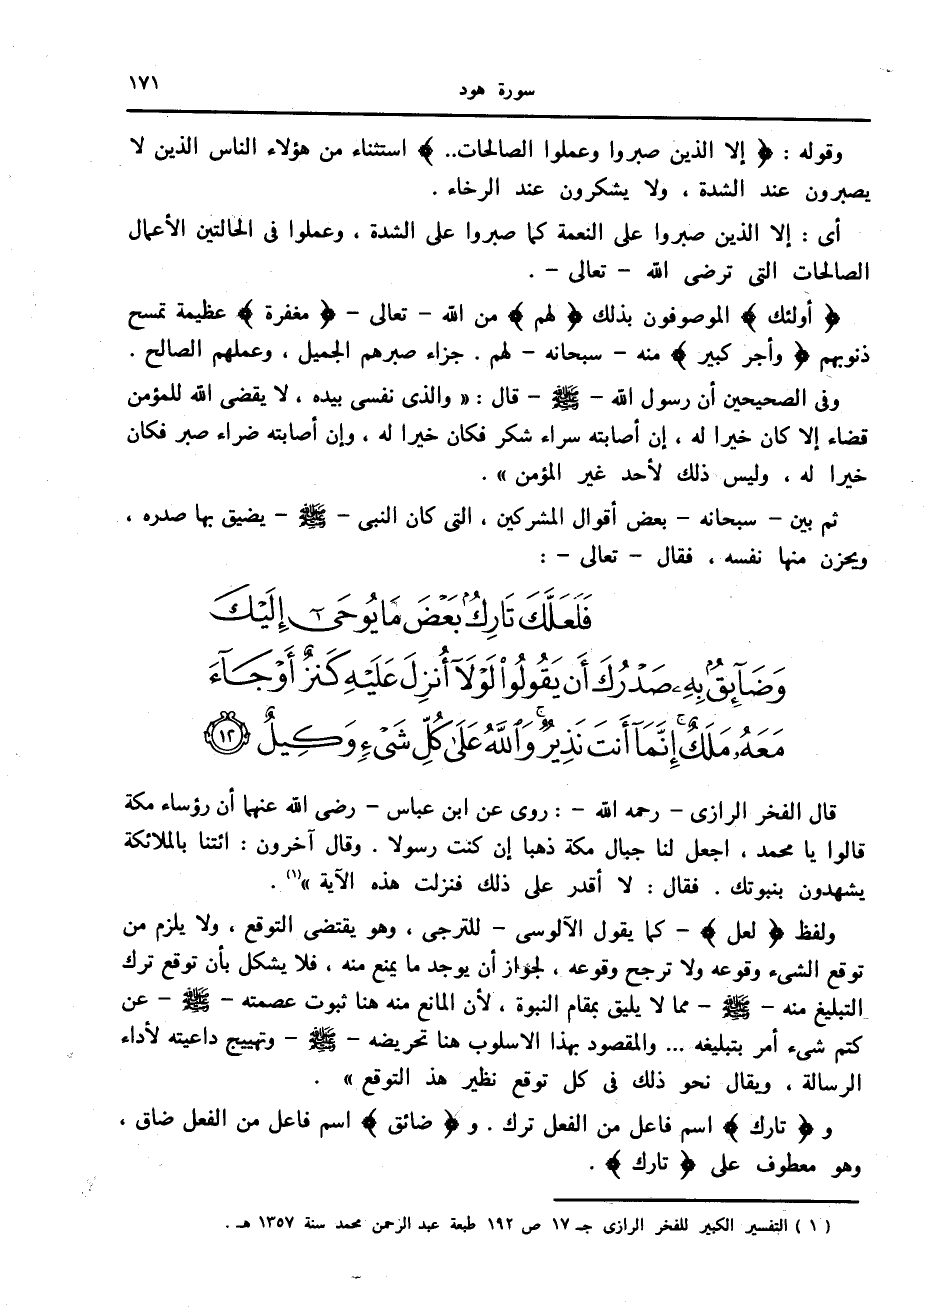 سورة هود
١٧١
وقوله : ﴿ إلا الذين صبروا وعملوا الصالحات.. ﴾ استثناء من هؤلاء الناس الذين لا
يصبرون عند الشدة ، ولا يشكرون عند الرخاء .
أى : إلا الذين صبروا على النعمة كما صبروا على الشدة ، وعملوا فى الحالتين الأعمال
الصالحات التى ترضى الله – تعالى – .
﴿ أولئك ﴾ الموصوفون بذلك ﴿ لهم ﴾ من الله – تعالى – ﴿ مغفرة ﴾ عظيمة تمسح
ذنوبهم ﴿ وأجر كبير ﴾ منه – سبحانه – لهم . جزاء صبرهم الجميل ، وعملهم الصالح .
وفى الصحيحين أن رسول الله – ﷺ – قال : « والذى نفسى بيده ، لا يقضى الله للمؤمن
قضاء إلا كان خيرا له ، إن أصابته سراء شكر فكان خيرا له ، وإن أصابته ضراء صبر فكان
خيرا له ، وليس ذلك لأحد غير المؤمن » .
ثم بين – سبحانه – بعض أقوال المشركين ، التى كان النبى – ﷺ – يضيق بها صدره ،
ويحزن منها نفسه ، فقال – تعالى – :
فَلَعَلَّكَ تَارِكٌۢ بَعْضَ مَا يُوحَىٰٓ إِلَيْكَ
وَضَآئِقٌۢ بِهِۦ صَدْرُكَ أَن يَقُولُوا۟ لَوْلَآ أُنزِلَ عَلَيْهِ كَنزٌ أَوْ جَآءَ
مَعَهُۥ مَلَكٌ ۚ إِنَّمَآ أَنتَ نَذِيرٌ ۚ وَٱللَّهُ عَلَىٰ كُلِّ شَىْءٍ وَكِيلٌ ١٢
قال الفخر الرازى – رحمه الله – : روى عن ابن عباس – رضى الله عنهما أن رؤساء مكة
قالوا يا محمد ، اجعل لنا جبال مكة ذهبا إن كنت رسولا . وقال آخرون : ائتنا بالملائكة
يشهدون بنبوتك . فقال : لا أقدر على ذلك فنزلت هذه الآية »(١) .
ولفظ ﴿ لعل ﴾ – كما يقول الآلوسى – للترجى ، وهو يقتضى التوقع ، ولا يلزم من
توقع الشىء وقوعه ولا ترجح وقوعه ، لجواز أن يوجد ما يمنع منه ، فلا يشكل بأن توقع ترك
التبليغ منه – ﷺ – مما لا يليق بمقام النبوة ، لأن المانع منه هنا ثبوت عصمته – ﷺ – عن
كتم شىء أمر بتبليغه ... والمقصود بهذا الاسلوب هنا تحريضه – ﷺ – وتهييج داعيته لأداء
الرسالة ، ويقال نحو ذلك فى كل توقع نظير هذ التوقع » .
و ﴿ تارك ﴾ اسم فاعل من الفعل ترك . و ﴿ ضائق ﴾ اسم فاعل من الفعل ضاق ،
وهو معطوف على ﴿ تارك ﴾ .
( ١ ) التفسير الكبير للفخر الرازى جـ ١٧ ص ١٩٢ طبعة عبد الرحمن محمد سنة ١٣٥٧ هـ .